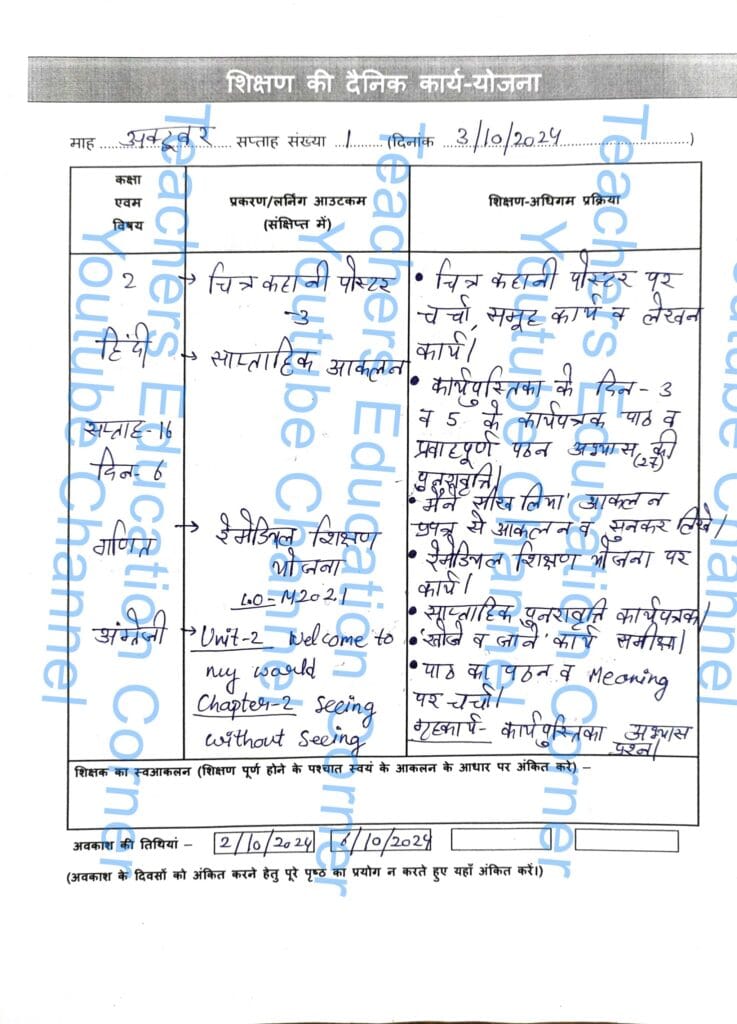 शिक्षण की दैनिक कार्य-योजना
माह अक्टूबर सप्ताह संख्या 1 (दिनांक 3/10/2024)
कक्षा
एवम
विषय
प्रकरण/लर्निंग आउटकम
(संक्षिप्त में)
शिक्षण-अधिगम प्रक्रिया
2
हिंदी
सप्ताह-16
दिन-6
गणित
अंग्रेजी
→ चित्र कहानी पोस्टर
-3
→ साप्ताहिक आकलन
→ रेमेडियल शिक्षण
योजना
LO-M2021
→ Unit-2 Welcome to
my world
Chapter-2 Seeing
without Seeing
• चित्र कहानी पोस्टर पर
चर्चा, समूह कार्य व लेखन
कार्य।
• कार्यपुस्तिका के दिन-3
व 5 के कार्यपत्रक पाठ व
प्रवाहपूर्ण पठन अभ्यास (27) की
पुनरावृत्ति।
• 'मैंने सीख लिया' आकलन
प्रपत्र से आकलन व सुनकर लिखें।
• रेमेडियल शिक्षण योजना पर
कार्य।
• साप्ताहिक पुनरावृत्ति कार्यपत्रक।
• 'खोजें व जानें' कार्य समीक्षा।
• पाठ का पठन व Meaning
पर चर्चा।
गृहकार्य- कार्यपुस्तिका अभ्यास
प्रश्न।
शिक्षक का स्वआकलन (शिक्षण पूर्ण होने के पश्चात स्वयं के आकलन के आधार पर अंकित करे) –
अवकाश की तिथियां – 2/10/2024 /10/2024
(अवकाश के दिवसों को अंकित करने हेतु पूरे पृष्ठ का प्रयोग न करते हुए यहाँ अंकित करें।)
Teachers Education Corner
Youtube Channel
Teachers Education Corner
Youtube Channel
Teachers Education Corner
Youtube Channel